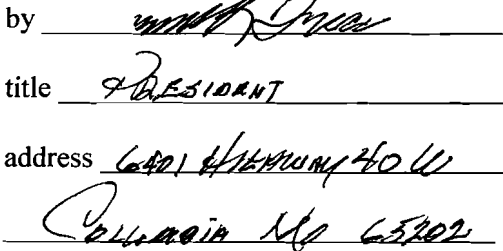 by
title PRESIDENT
address 6401 HIGHWAY 40 W
COLUMBIA MO 65202